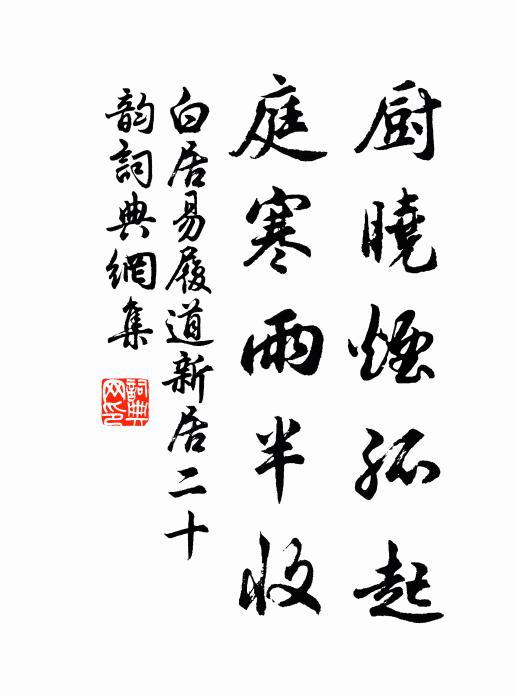 厨曉煙孤起
庭寒雨半收
白居易履道新居二十
韵詞典網集
詞典網印